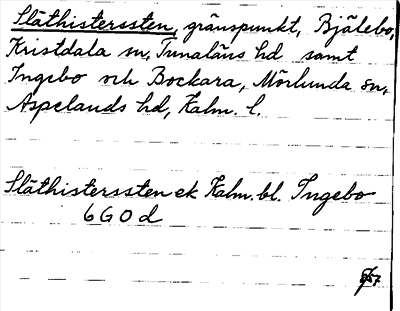 Slåthisterssten, gränspunkt, Bjälebo,
Kristdala sn, Tunaläns hd samt
Ingebo och Bockara, Mörlunda sn,
Aspelands hd, Kalm. l.
Slåthisterssten ek Kalm. bl. Ingebo
6 G 0 d